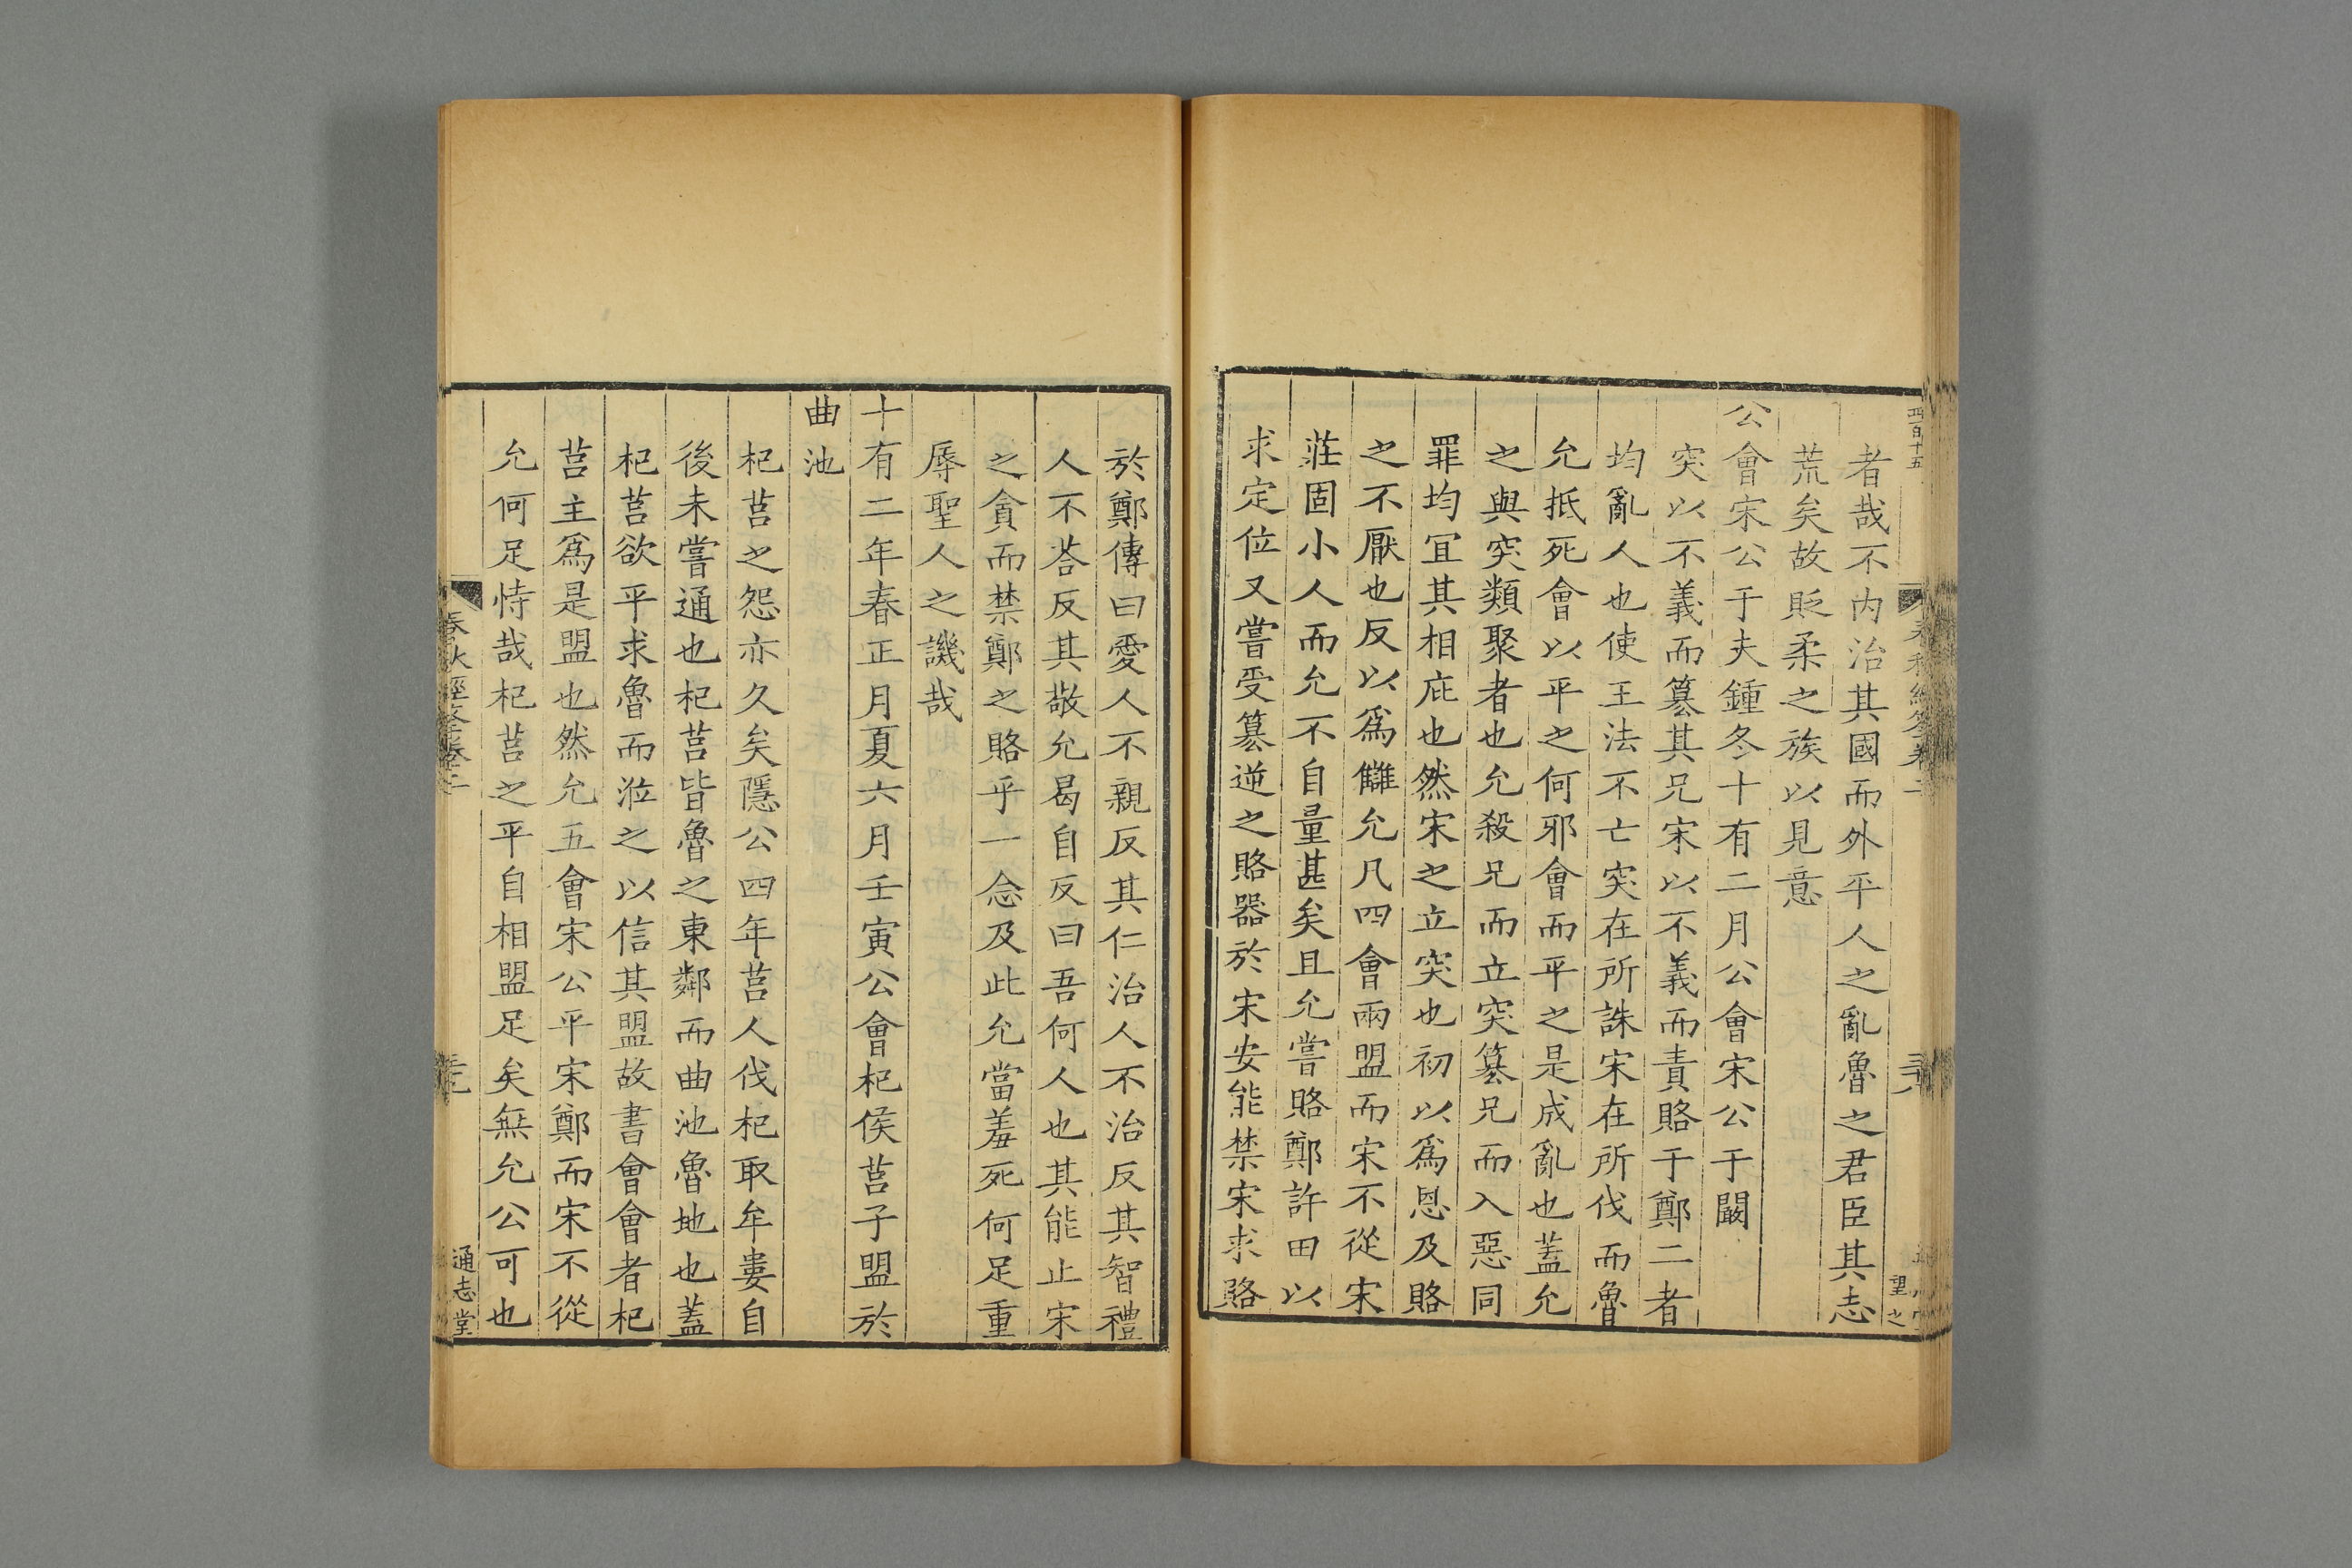 四百十五
者哉不内治其國而外平人之亂魯之君臣其志
荒矣故貶柔之族以見意
公會宋公于夫鍾冬十有二月公會宋公于闞
突以不義而篡其兄宋以不義而責賂于鄭二者
均亂人也使王法不亡突在所誅宋在所伐而魯
允抵死會以平之何邪會而平之是成亂也蓋允
之與突類聚者也允殺兄而立突篡兄而入惡同
罪均冝其相庇也然宋之立突也初以為恩及賂
之不厭也反以為讎允凡四會兩盟而宋不從宋
莊固小人而允不自量甚矣且允嘗賂鄭許田以
求定位又嘗受篡逆之賂器於宋安能禁宋求賂
於鄭傳曰愛人不親反其仁治人不治反其智禮
人不荅反其敬允曷自反曰吾何人也其能止宋
之貪而禁鄭之賂乎一念及此允當羞死何足重
辱聖人之譏哉
十有二年春正月夏六月壬寅公會杞侯莒子盟於
曲池
杞莒之怨亦久矣隱公四年莒人伐杞取牟婁自
後未嘗通也杞莒皆魯之東鄰而曲池魯地也蓋
杞莒欲平求魯而涖之以信其盟故書會會者杞
莒主為是盟也然允五會宋公平宋鄭而宋不從
允何足恃哉杞莒之平自相盟足矣無允公可也
通志堂